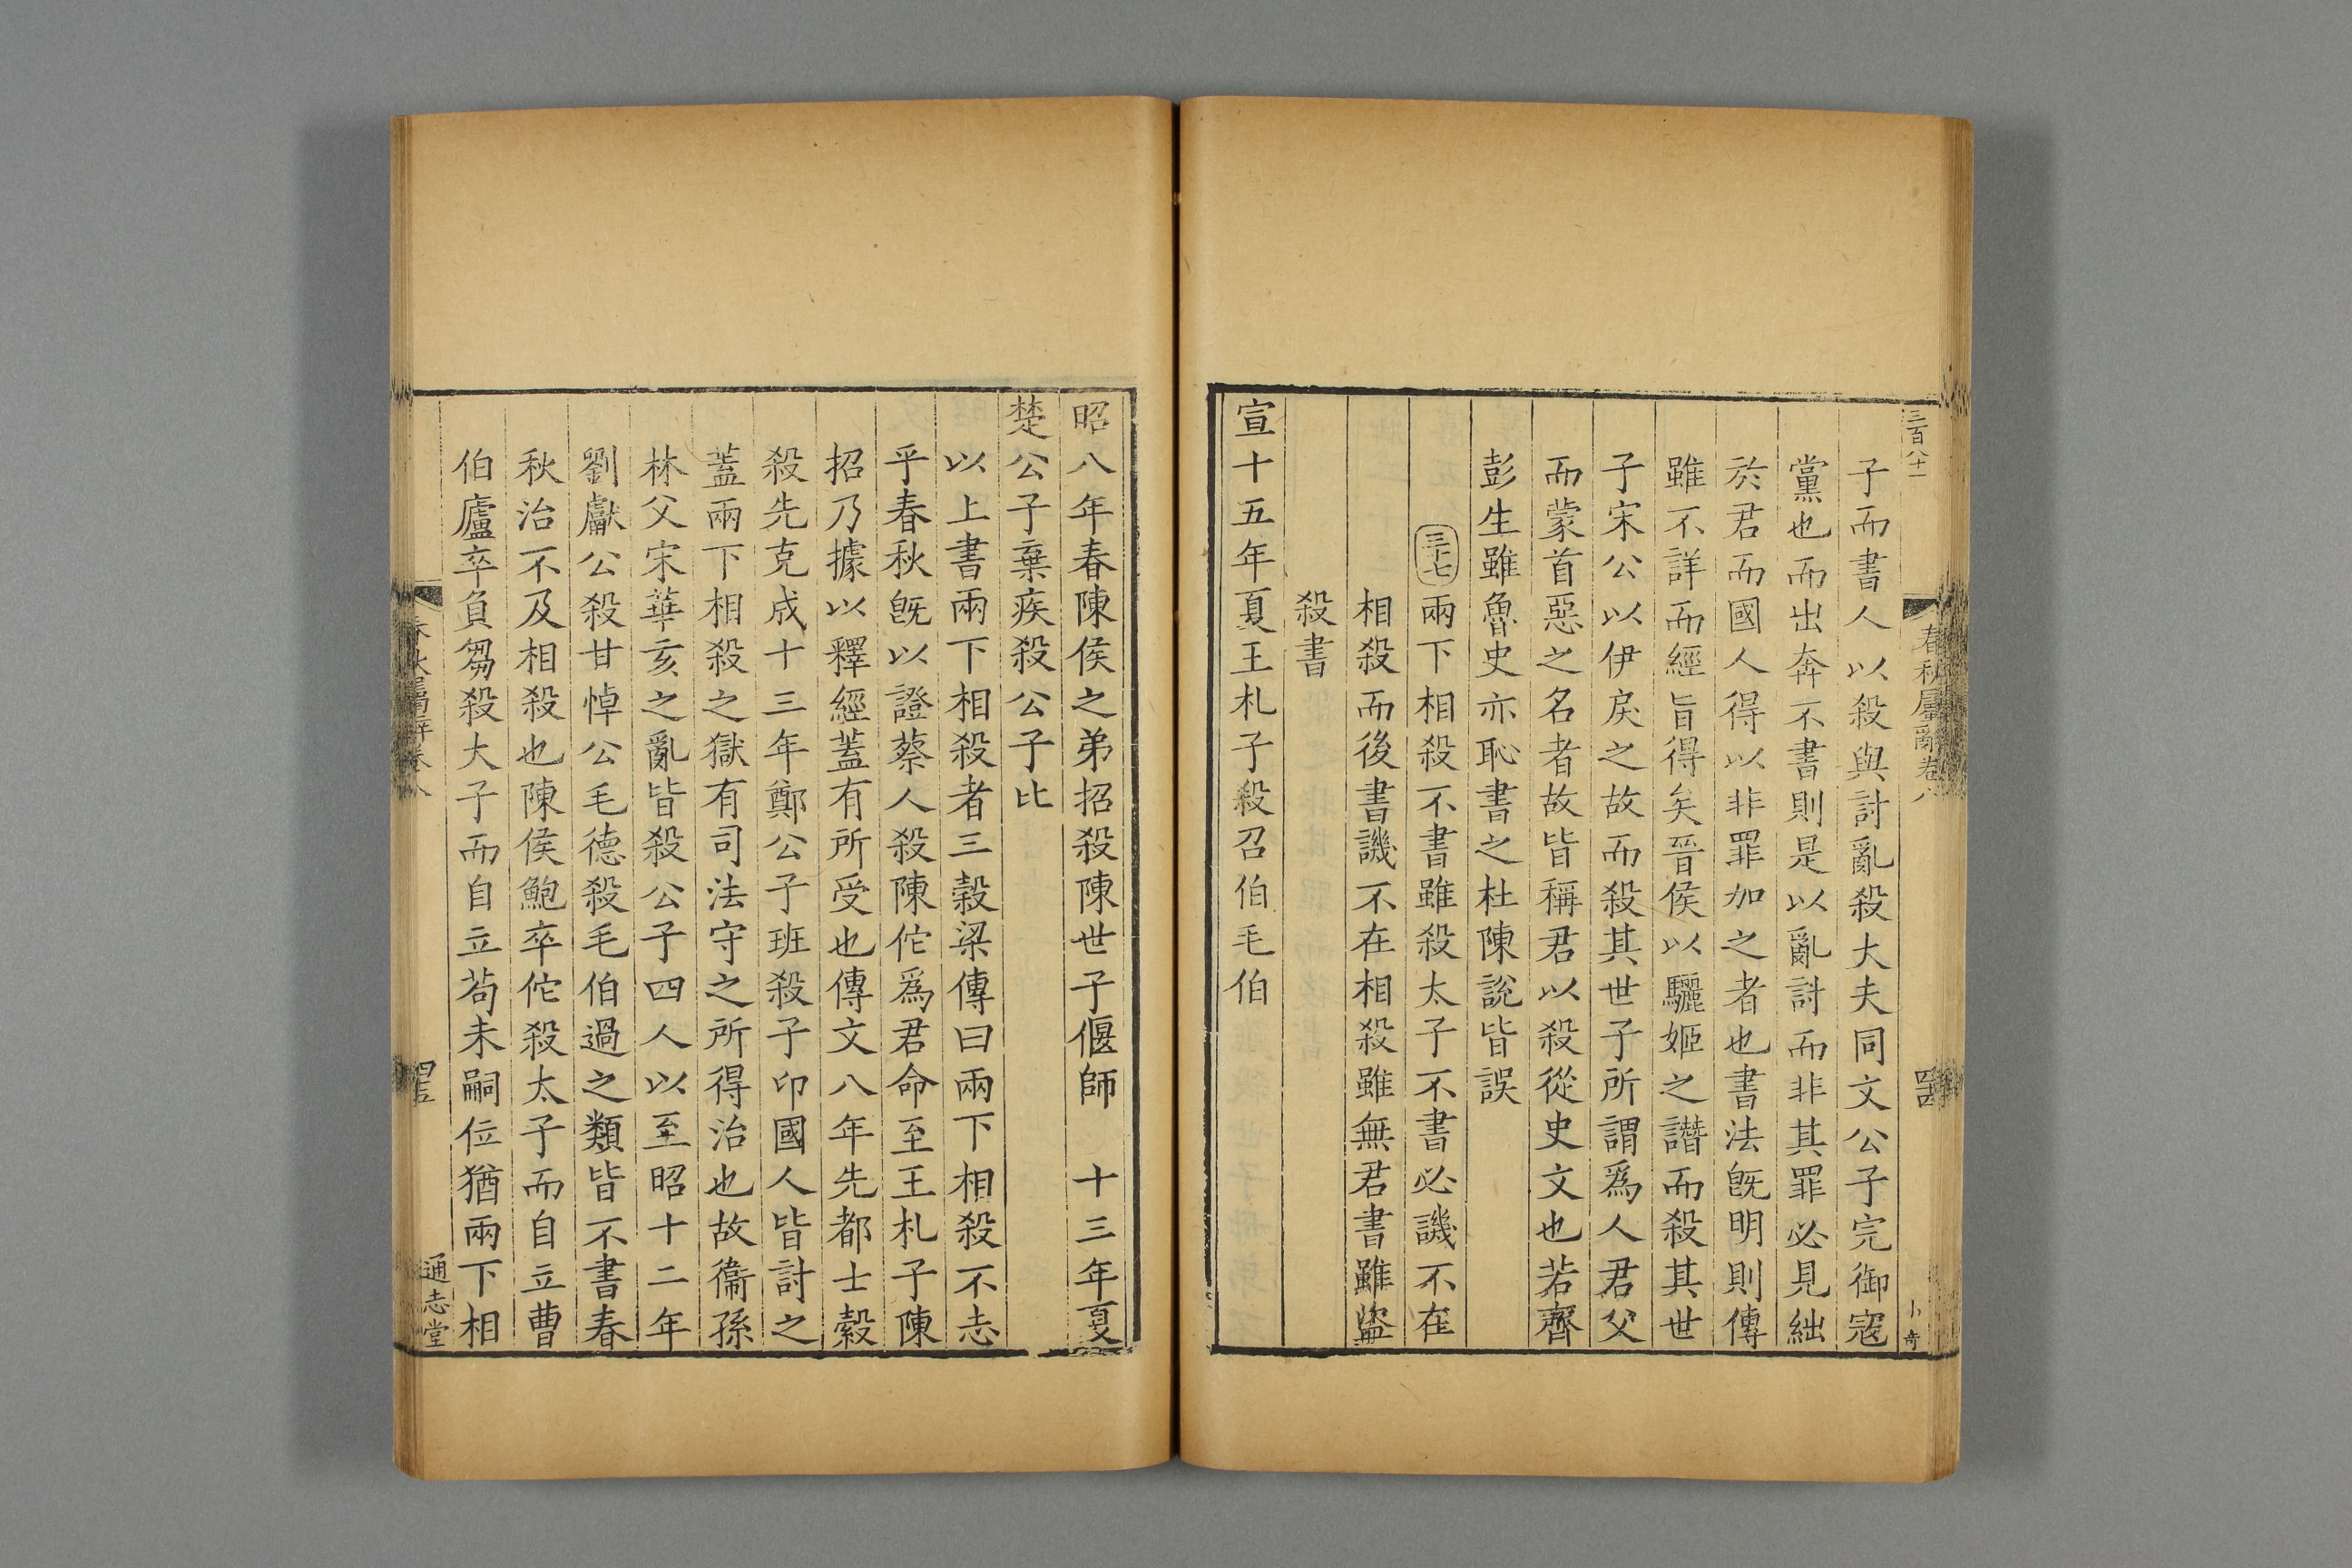 三百八十一
春秋屬辭卷八
四四
卜奇
子而書人以殺與討亂殺大夫同文公子完御寇
黨也而出奔不書則是以亂討而非其罪必見絀
於君而國人得以非罪加之者也書法旣明則傳
雖不詳而經旨得矣晉侯以驪姬之譖而殺其世
子宋公以伊戾之故而殺其世子所謂爲人君父
而蒙首惡之名者故皆稱君以殺從史文也若齊
彭生雖魯史亦恥書之杜陳說皆誤
三十七 兩下相殺不書雖殺太子不書必譏不在
相殺而後書譏不在相殺雖無君書雖盜
殺書
宣十五年夏王札子殺召伯毛伯
昭八年春陳侯之弟招殺陳世子偃師 十三年夏
楚公子棄疾殺公子比
以上書兩下相殺者三穀梁傳曰兩下相殺不志
乎春秋旣以證蔡人殺陳佗爲君命至王札子陳
招乃據以釋經蓋有所受也傳文八年先都士縠
殺先克成十三年鄭公子班殺子印國人皆討之
蓋兩下相殺之獄有司法守之所得治也故衞孫
林父宋華亥之亂皆殺公子四人以至昭十二年
劉獻公殺甘悼公毛德殺毛伯過之類皆不書春
秋治不及相殺也陳侯鮑卒佗殺太子而自立曹
伯廬卒負芻殺大子而自立茍未嗣位猶兩下相
春秋屬辭卷八
四五
通志堂